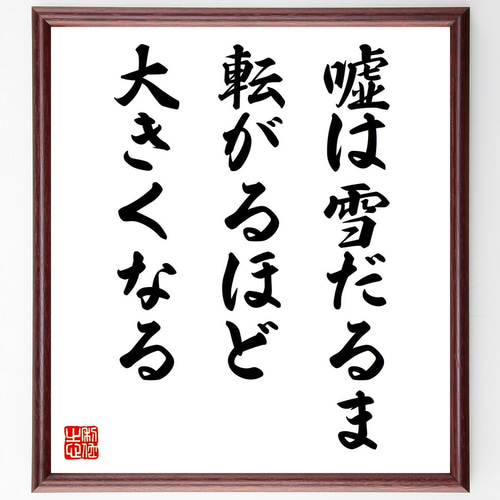 嘘は雪だるま
転がるほど
大きくなる